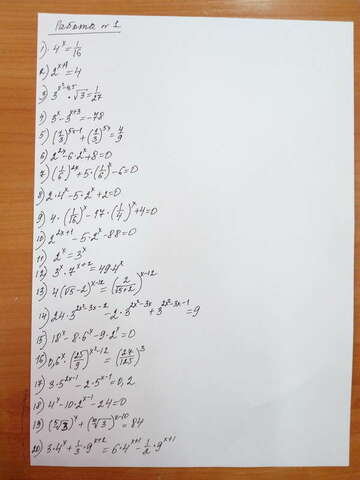 Работа № 1
1) 4^x = 1/16
2) 2^(x+1) = 4
3) 3^(x^2-4,5) · √3 = 1/27
4) 3^x - 3^(x+3) = -78
5) (1/3)^(5x-1) + (1/3)^(5x) = 4/9
6) 2^(2x) - 6·2^x + 8 = 0
7) (1/6)^(2x) + 5·(1/6)^x - 6 = 0
8) 2·4^x - 5·2^x + 2 = 0
9) 4·(1/16)^x - 17·(1/4)^x + 4 = 0
10) 2^(2x+1) - 5·2^x - 88 = 0
11) 2^x = 3^x
12) 3^x · 7^(x+2) = 49·4^x
13) 4(√5-2)^(x-12) = (2/(√5+2))^(x-12)
14) 24·3^(2x^2-3x-2) - 2·3^(2x^2-3x) + 3^(2x^2-3x-1) = 9
15) 18^x - 8·6^x - 9·2^x = 0
16) 0,6^x · (25/9)^(x^2-12) = (27/125)^3
17) 3·5^(2x-1) - 2·5^(x-1) = 0,2
18) 4^x - 10·2^(x-1) - 24 = 0
19) (⁵√3)^x + (¹⁰√3)^(x-10) = 84
20) 3·4^x + 1/3·9^(x+2) = 6·4^(x+1) - 1/2·9^(x+1)